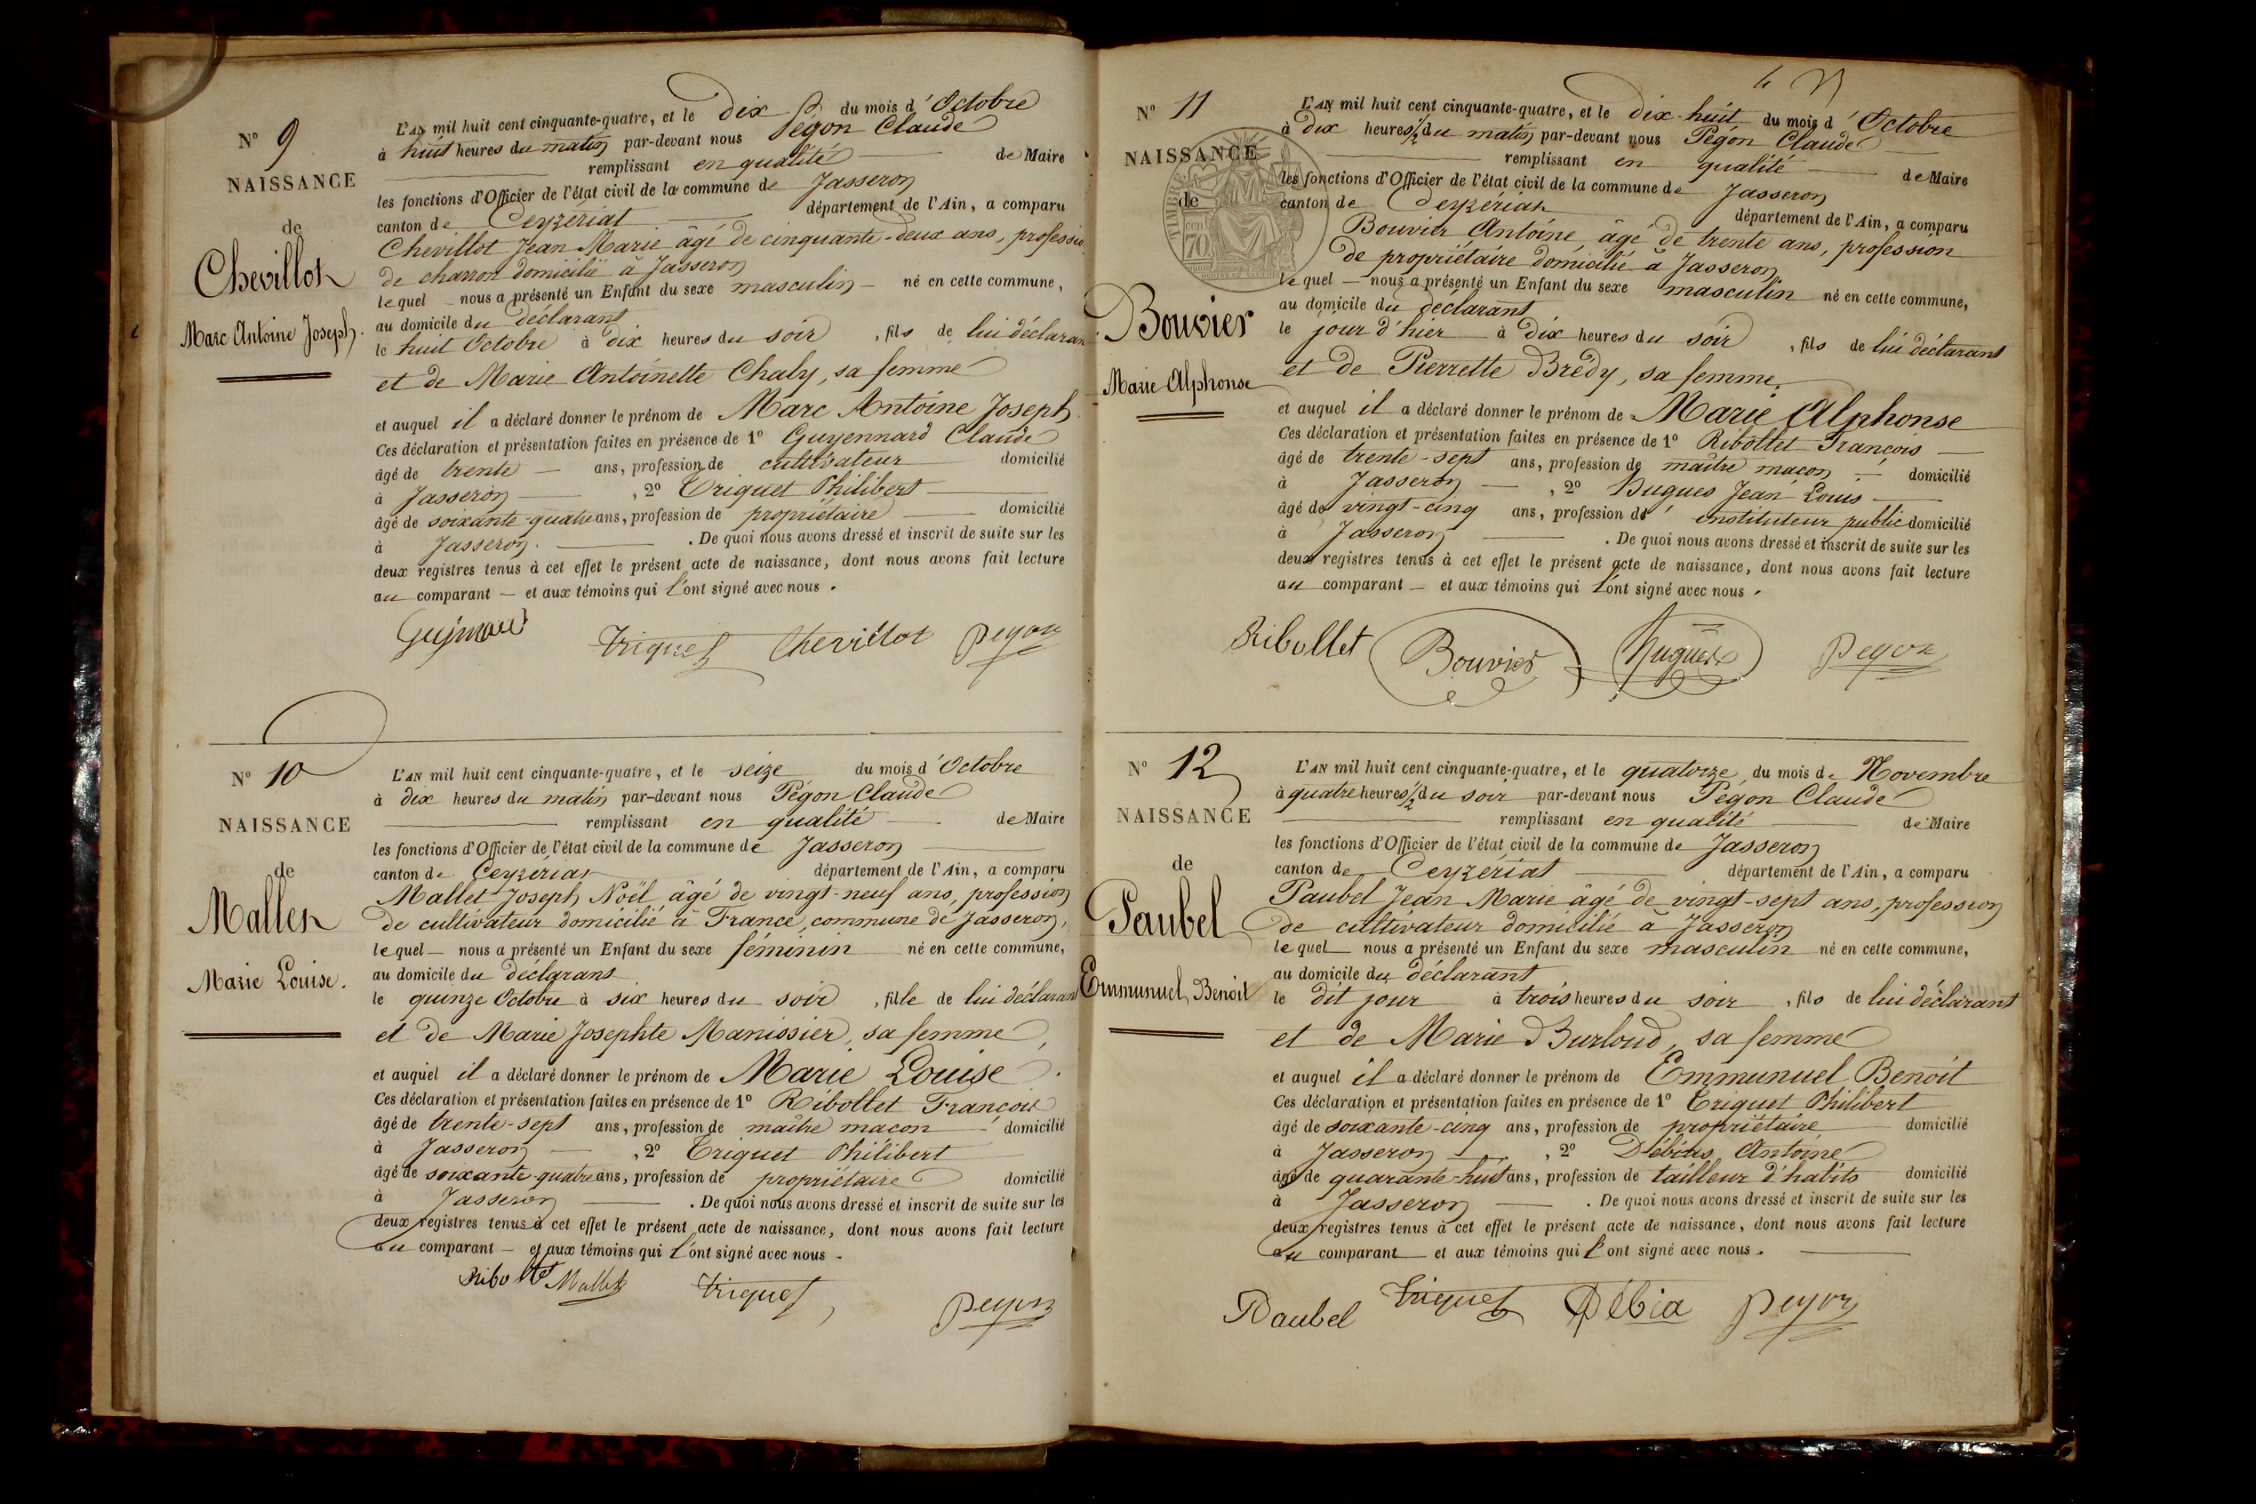 N° 9
NAISSANCE
de
Chevillot
Marc Antoine Joseph.
L'AN mil huit cent cinquante-quatre, et le dix du mois d'Octobre
à huit heures du matin par-devant nous Pegon Claude
remplissant en qualité de Maire
les fonctions d'Officier de l'état civil de la commune de Jasseron
canton de Ceyzériat département de l'Ain, a comparu
Chevillot Jean Marie âgé de cinquante-deux ans, profession
de charron domicilié à Jasseron
lequel nous a présenté un Enfant du sexe masculin né en cette commune,
au domicile du déclarant
le huit Octobre à dix heures du soir, fils de lui déclarant
et de Marie Antoinette Chaly, sa femme
et auquel il a déclaré donner le prénom de Marc Antoine Joseph
Ces déclaration et présentation faites en présence de 1° Guyennard Claude
âgé de trente ans, profession de cultivateur domicilié
à Jasseron, 2° Triquet Philibert
âgé de soixante-quatre ans, profession de propriétaire domicilié
à Jasseron. De quoi nous avons dressé et inscrit de suite sur les
deux registres tenus à cet effet le présent acte de naissance, dont nous avons fait lecture
au comparant et aux témoins qui l'ont signé avec nous.
Triquet Chevillot Pegon
N° 10
NAISSANCE
de
Mallet
Marie Louise.
L'AN mil huit cent cinquante-quatre, et le seize du mois d'Octobre
à dix heures du matin par-devant nous Pégon Claude
remplissant en qualité de Maire
les fonctions d'Officier de l'état civil de la commune de Jasseron
canton de Ceyzériat département de l'Ain, a comparu
Mallet Joseph Noël âgé de vingt-neuf ans, profession
de cultivateur domicilié à France, commune de Jasseron,
lequel nous a présenté un Enfant du sexe féminin né en cette commune,
au domicile du déclarant
le quinze Octobre à six heures du soir, fille de lui déclarant
et de Marie Josephte Manissier, sa femme,
et auquel il a déclaré donner le prénom de Marie Louise.
Ces déclaration et présentation faites en présence de 1° Ribollet François
âgé de trente-sept ans, profession de maître maçon domicilié
à Jasseron, 2° Triquet Philibert
âgé de soixante-quatre ans, profession de propriétaire domicilié
à Jasseron. De quoi nous avons dressé et inscrit de suite sur les
deux registres tenus à cet effet le présent acte de naissance, dont nous avons fait lecture
au comparant et aux témoins qui l'ont signé avec nous.
Ribollet Mallet Triquet Pegon
N° 11
NAISSANCE
de
Bouvier
Marie Alphonse
L'AN mil huit cent cinquante-quatre, et le dix-huit du mois d'Octobre
à dix heures 1/2 du matin par-devant nous Pégon Claude
remplissant en qualité de Maire
les fonctions d'Officier de l'état civil de la commune de Jasseron
canton de Ceyzériat département de l'Ain, a comparu
Bouvier Antoine âgé de trente ans, profession
de propriétaire domicilié à Jasseron
lequel nous a présenté un Enfant du sexe masculin né en cette commune,
au domicile du déclarant
le jour d'hier à dix heures du soir, fils de lui déclarant
et de Pierrette Brédy, sa femme,
et auquel il a déclaré donner le prénom de Marie Alphonse
Ces déclaration et présentation faites en présence de 1° Ribollet François
âgé de trente-sept ans, profession de maître maçon domicilié
à Jasseron, 2° Hugues Jean Louis
âgé de vingt-cinq ans, profession d'instituteur public domicilié
à Jasseron. De quoi nous avons dressé et inscrit de suite sur les
deux registres tenus à cet effet le présent acte de naissance, dont nous avons fait lecture
au comparant et aux témoins qui l'ont signé avec nous.
Ribollet Bouvier Hugues Pegon
N° 12
NAISSANCE
de
Paubel
Emmunuel Benoit
L'AN mil huit cent cinquante-quatre, et le quatorze du mois de Novembre
à quatre heures 1/2 du soir par-devant nous Pégon Claude
remplissant en qualité de Maire
les fonctions d'Officier de l'état civil de la commune de Jasseron
canton de Ceyzériat département de l'Ain, a comparu
Paubel Jean Marie âgé de vingt-sept ans, profession
de cultivateur domicilié à Jasseron
lequel nous a présenté un Enfant du sexe masculin né en cette commune,
au domicile du déclarant
le dit jour à trois heures du soir, fils de lui déclarant
et de Marie Burloud, sa femme
et auquel il a déclaré donner le prénom de Emmunuel Benoit
Ces déclaration et présentation faites en présence de 1° Triquet Philibert
âgé de soixante-cinq ans, profession de propriétaire domicilié
à Jasseron, 2° Débias Antoine
âgé de quarante-huit ans, profession de tailleur d'habits domicilié
à Jasseron. De quoi nous avons dressé et inscrit de suite sur les
deux registres tenus à cet effet le présent acte de naissance, dont nous avons fait lecture
au comparant et aux témoins qui l'ont signé avec nous.
Paubel Triquet Débia Pegon